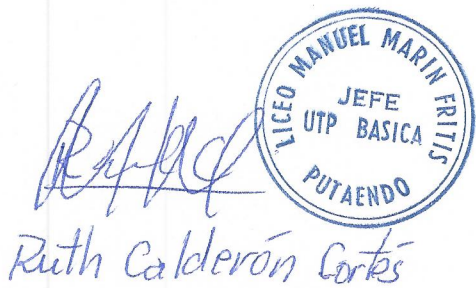 LICEO MANUEL MARIN FRITIS
JEFE
UTP BASICA
PUTAENDO
Ruth Calderón Cortés